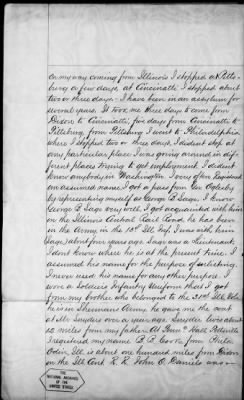 on my way coming from Illinois I stopped at Pitts-
burg a few days, at Cincinatti I stopped about
two or three days - I have been in an assylum for
several years. It took me three days to come from
Dixon to Cincinatti, five days from Cincinatti to
Pittsburg, from Pittsburg I went to Philadelphia
where I stopped two or three days, I didnt stop at
any particular place I was going around in dif-
ferent places trying to get employment, I didnt
know anybody in Washington I very often Registered
an assumed name. I got a pass from Gov Oglesby
by representing myself as George B. Sage. I know
George B Sage very well I got acquainted with him
on the Illinois Central Rail Road, he has been
in the Army in the 13th Ill Inf. I was with him
(Sage) about four years ago. Sage was a Lieutenant.
I dont know where he is at the present time. I
assumed his name for the purpose of
I never used his name for any other purpose. I
wore a Soldiers Infantry Uniform that I got
from my brother who belonged to the 21st Ill Vols
he is in Shermans Army, he gave me the coat
at Mr Snyders over a year ago. Snyder lives about
12 miles from my father At Penn Hall Pottsville
I registered my name B. B. from Phila
Odin Ill. is about one hundred miles from Dixon
on the Ill Cent. R.R. John O. Daniels was
THE
NATIONAL ARCHIVES
OF THE
UNITED STATES